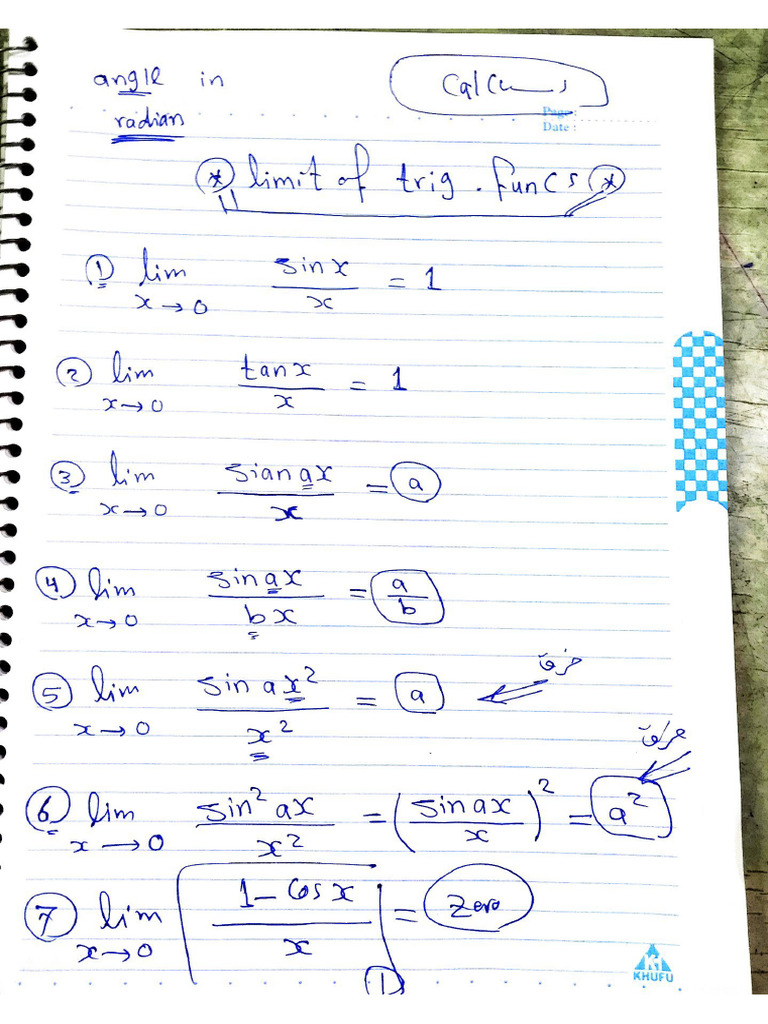 angle in
radian
Page :
Date :
* limit of trig. funcs *
① lim x→0 sinx/x = 1
② lim x→0 tanx/x = 1
③ lim x→0 sianax/x = a
④ lim x→0 sinax/bx = a/b
⑤ lim x→0 sin ax²/x² = a
⑥ lim x→0 sin² ax/x² = (sin ax/x)² = a²
⑦ lim x→0 1-cosx/x = Zero
1
KHUFU